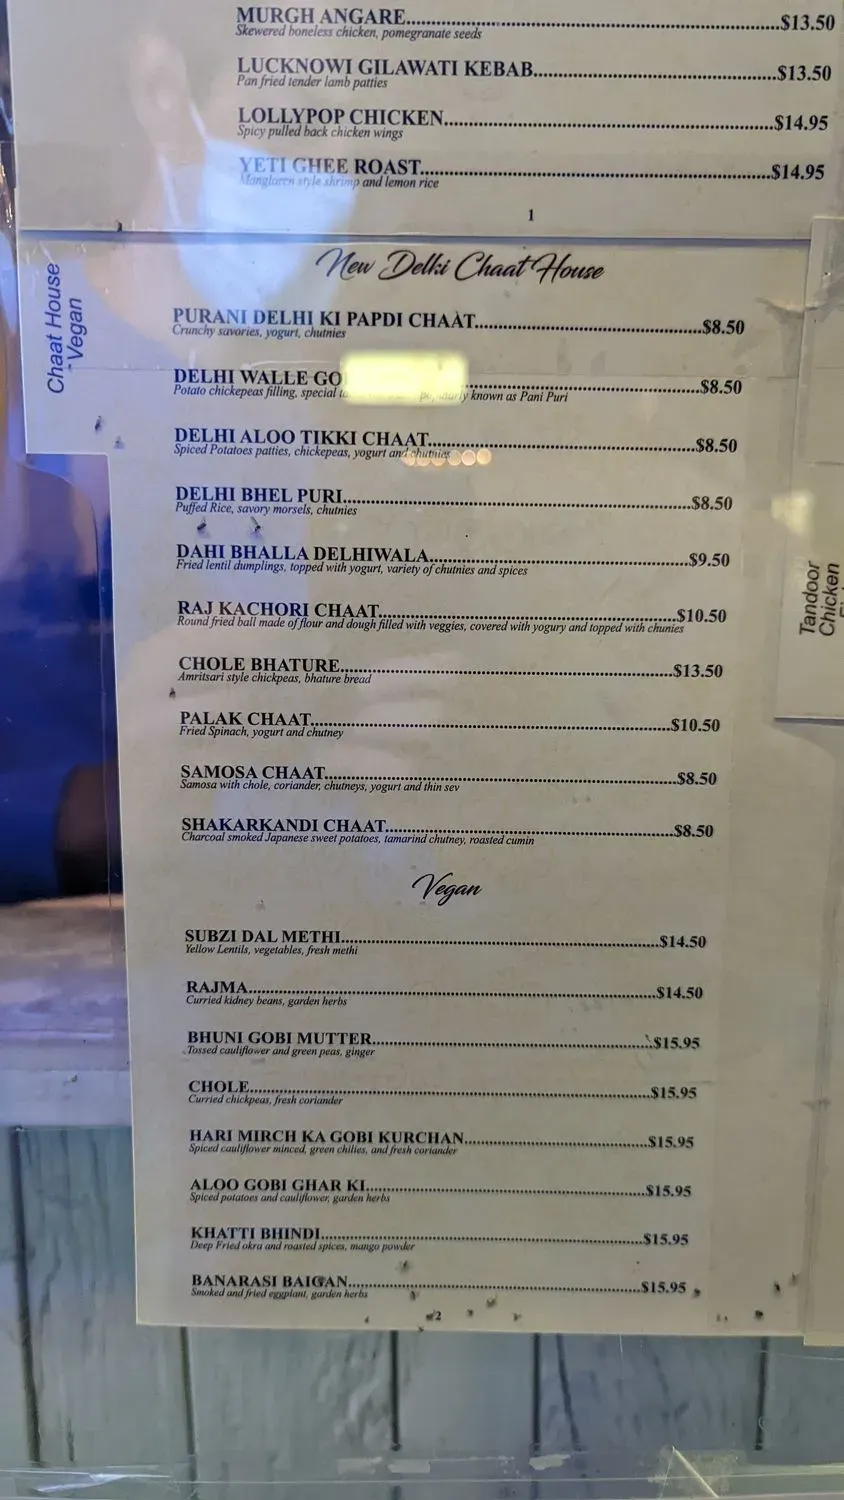 MURGH ANGARE....................$13.50
Skewered boneless chicken, pomegranate seeds
LUCKNOWI GILAWATI KEBAB....................$13.50
Pan fried tender lamb patties
LOLLYPOP CHICKEN....................$14.95
Spicy pulled back chicken wings
YETI GHEE ROAST....................$14.95
Manglaren style shrimp and lemon rice
1
New Delhi Chaat House
Chaat House
-Vegan
PURANI DELHI KI PAPDI CHAAT....................$8.50
Crunchy savories, yogurt, chutnies
DELHI WALLE ....................$8.50
Potato chickepeas filling, special known as Pani Puri
DELHI ALOO TIKKI CHAAT....................$8.50
Spiced Potatoes patties, chickepeas, yogurt and chutnies
DELHI BHEL PURI....................$8.50
Puffed Rice, savory morsels, chutnies
DAHI BHALLA DELHIWALA....................$9.50
Fried lentil dumplings, topped with yogurt, variety of chutnies and spices
RAJ KACHORI CHAAT....................$10.50
Round fried ball made of flour and dough filled with veggies, covered with yogury and topped with chunies
CHOLE BHATURE....................$13.50
Amritsari style chickpeas, bhature bread
PALAK CHAAT....................$10.50
Fried Spinach, yogurt and chutney
SAMOSA CHAAT....................$8.50
Samosa with chole, coriander, chutneys, yogurt and thin sev
SHAKARKANDI CHAAT....................$8.50
Charcoal smoked Japanese sweet potatoes, tamarind chutney, roasted cumin
Tandoor
Chicken
Vegan
SUBZI DAL METHI....................$14.50
Yellow Lentils, vegetables, fresh methi
RAJMA....................$14.50
Curried kidney beans, garden herbs
BHUNI GOBI MUTTER....................$15.95
Tossed cauliflower and green peas, ginger
CHOLE....................$15.95
Curried chickpeas, fresh coriander
HARI MIRCH KA GOBI KURCHAN....................$15.95
Spiced cauliflower minced, green chilies, and fresh coriander
ALOO GOBI GHAR KI....................$15.95
Spiced potatoes and cauliflower, garden herbs
KHATTI BHINDI....................$15.95
Deep Fried okra and roasted spices, mango powder
BANARASI BAIGAN....................$15.95
Smoked and fried eggplant, garden herbs
2